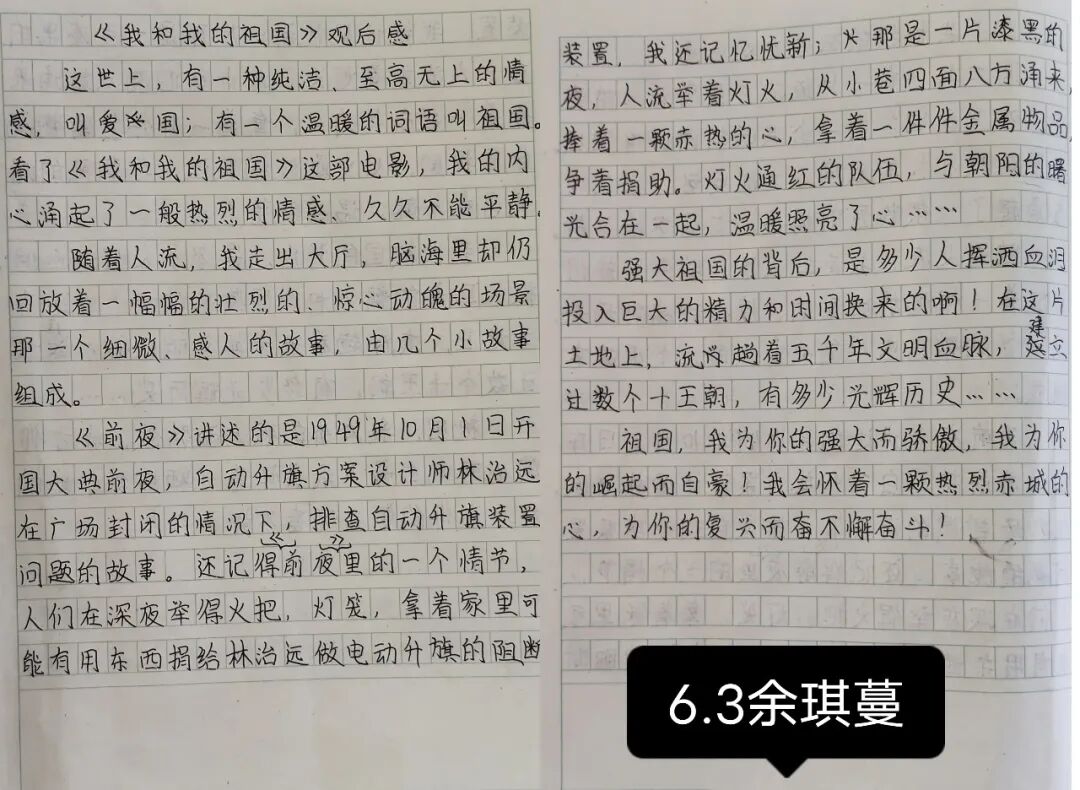 《我和我的祖国》观后感
这世上，有一种纯洁、至高无上的情
感，叫爱国；有一个温暖的词语叫祖国。
看了《我和我的祖国》这部电影，我的内
心涌起了一般热烈的情感、久久不能平静。
随着人流，我走出大厅，脑海里却仍
回放着一幅幅的壮烈的、惊心动魄的场景
那一个细微、感人的故事，由几个小故事
组成。
《前夜》讲述的是1949年10月1日开
国大典前夜，自动升旗方案设计师林治远
在广场封闭的情况下，排查自动升旗装置
问题的故事。还记得《前夜》里的一个情节，
人们在深夜举得火把，灯笼，拿着家里可
能有用东西捐给林治远做电动升旗的阻断
装置，我还记忆忧新；那是一片漆黑的
夜，人流举着灯火，从小巷四面八方涌来，
捧着一颗赤热的心，拿着一件件金属物品，
争着捐助。灯火通红的队伍，与朝阳的曙
光合在一起，温暖照亮了心……
强大祖国的背后，是多少人挥洒血泪
投入巨大的精力和时间换来的啊！在这片
土地上，流淌着五千年文明血脉，建立
过数个十王朝，有多少光辉历史……
祖国，我为你的强大而骄傲，我为你
的崛起而自豪！我会怀着一颗热烈赤城的
心，为你的复兴而奋不懈奋斗！
6.3余琪蔓